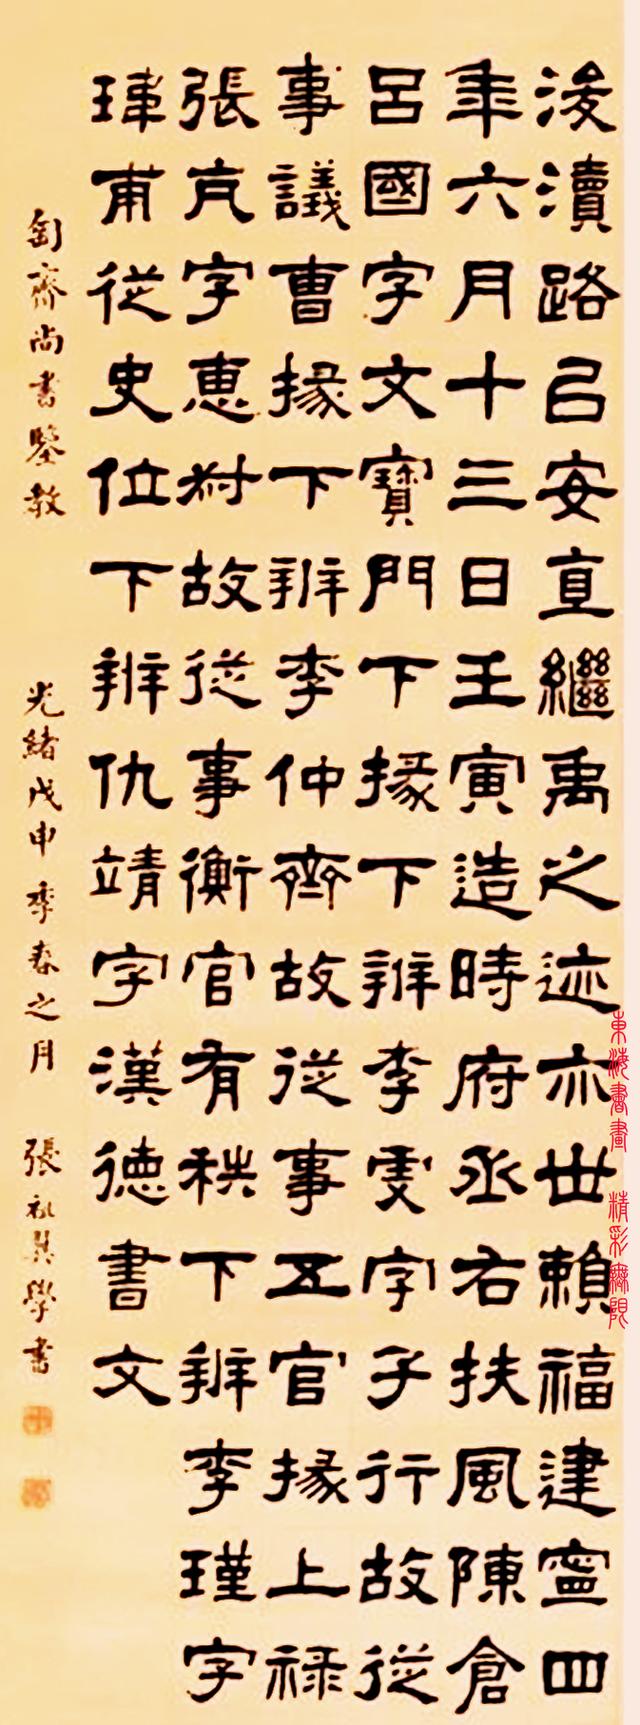 浚瀆路㠯安直繼禹之迹亦世賴福建寧四
年六月十三日壬寅造時府丞右扶風陳倉
呂國字文寶門下掾下辨李旻字子行故從
事議曹掾下辨李仲齊故從事五官掾上祿
張亢字惠叔故從事衡官有秩下辨李瑾字
瑋甫從史位下辨仇靖字漢德書文
匋齋尚書鑒教 光緒戊申季春之月 張祖翼學書
東海書畫 精彩無限